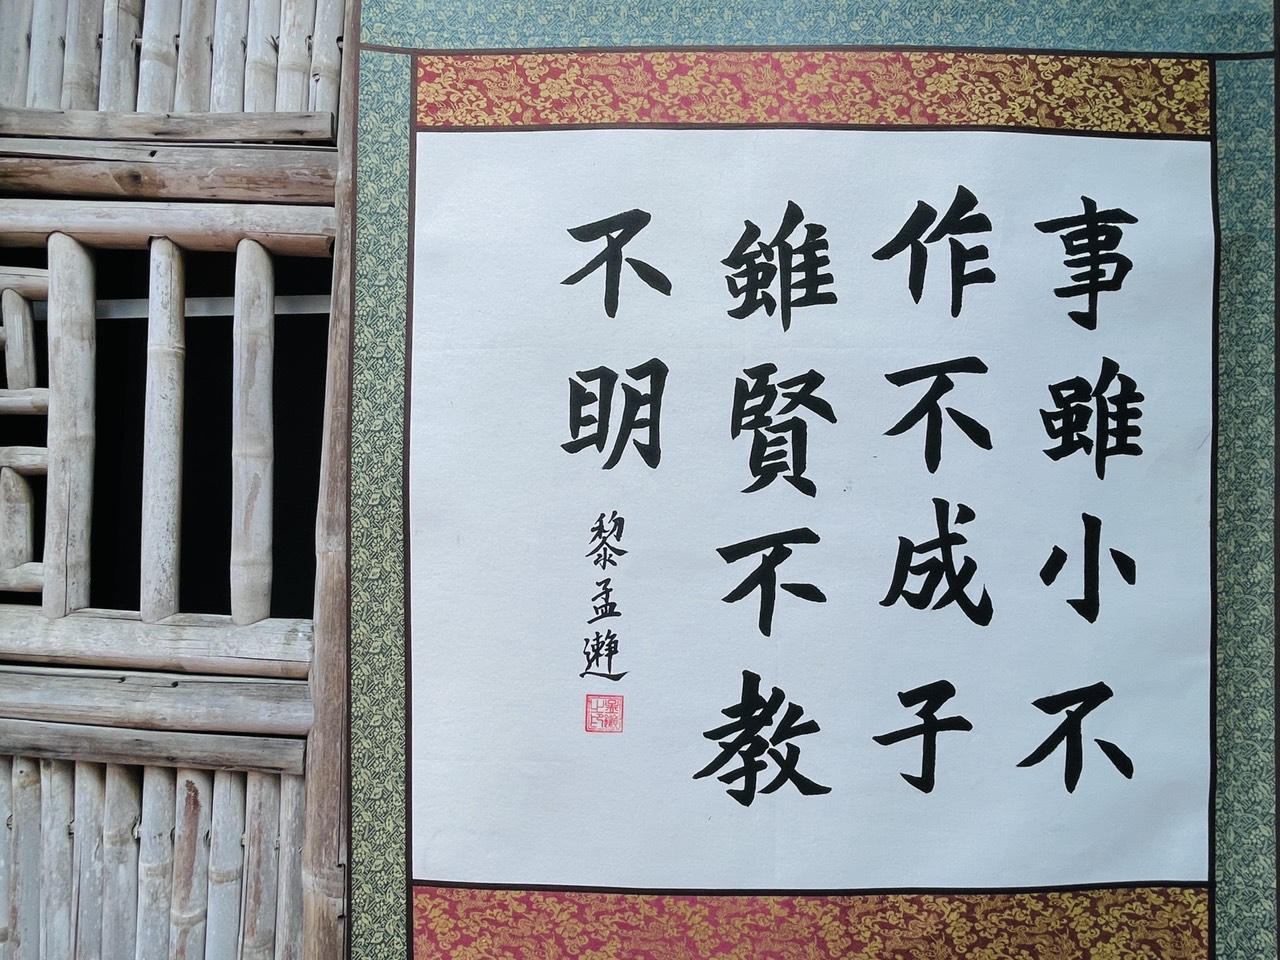 事雖小不
作不成子
雖賢不教
不明
黎孟